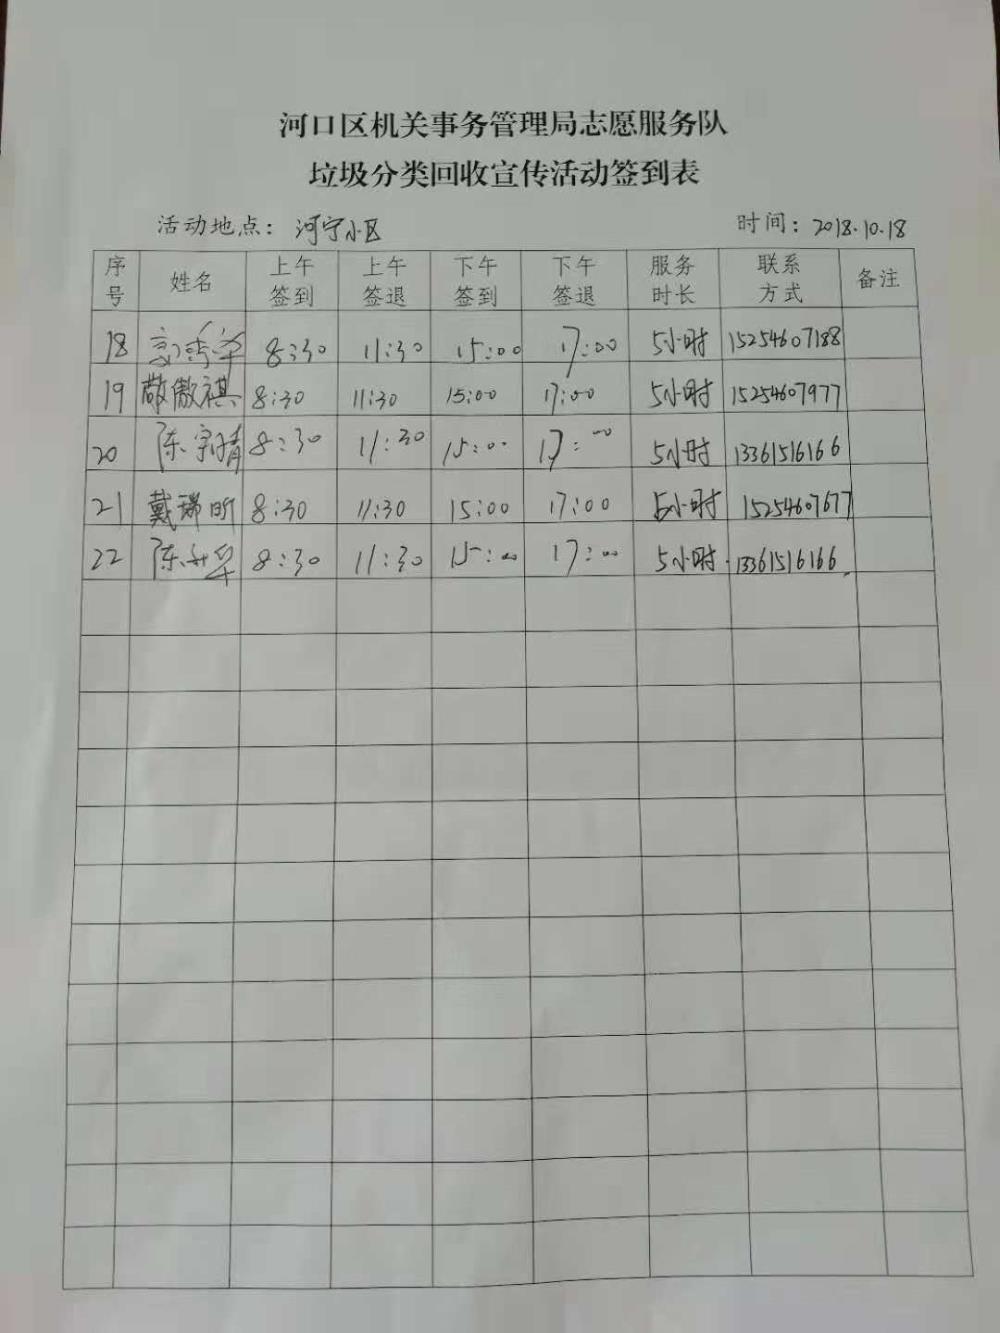 河口区机关事务管理局志愿服务队
垃圾分类回收宣传活动签到表
活动地点：河宁小区 时间：2018.10.18
序号 姓名 上午签到 上午签退 下午签到 下午签退 服务时长 联系方式 备注
18 8:30 11:30 15:00 17:00 5小时 15254607188
19 敬傲祺 8:30 11:30 15:00 17:00 5小时 15254607977
20 陈 8:30 11:30 15:00 17:00 5小时 13361516166
21 戴瑞昕 8:30 11:30 15:00 17:00 5小时 15254607677
22 陈 8:30 11:30 15:00 17:00 5小时 13361516166